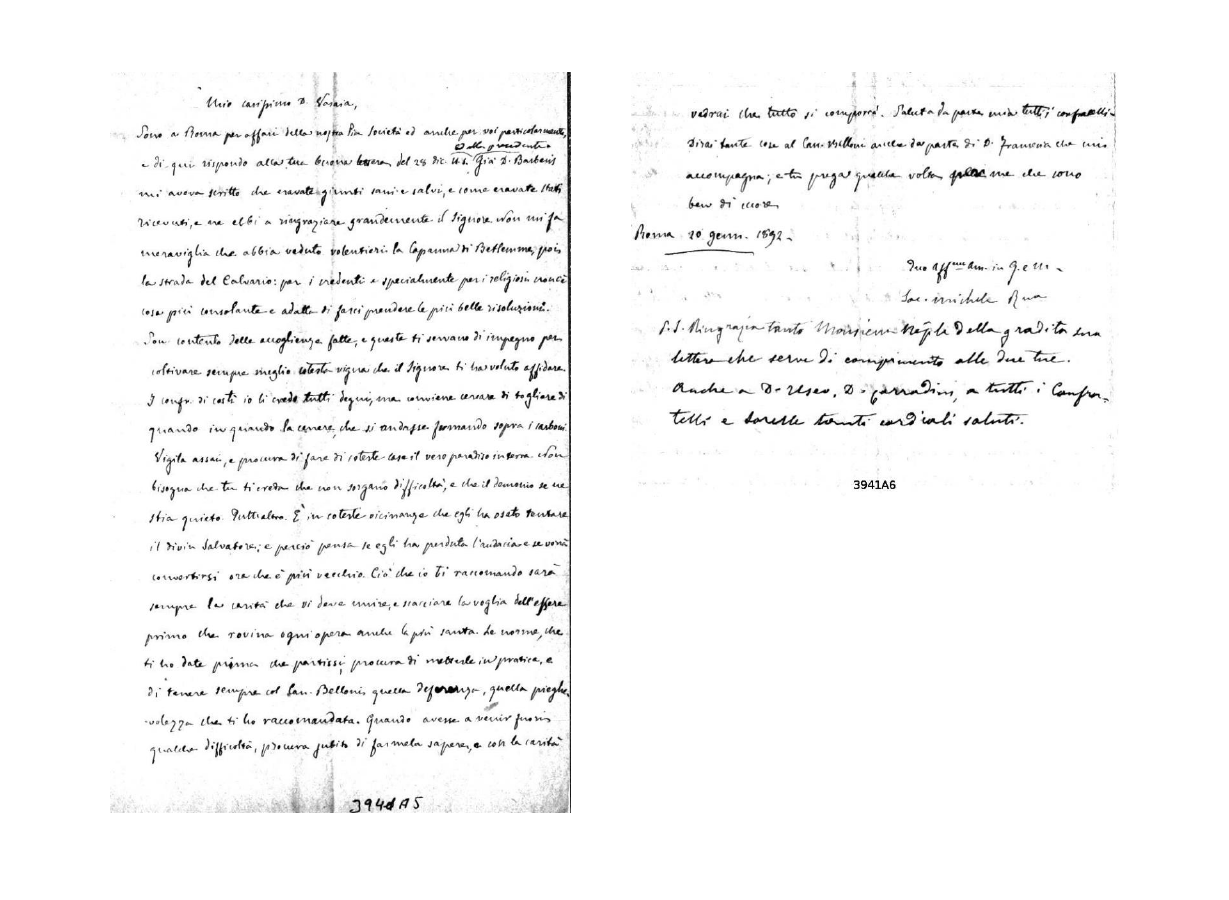 Mio carissimo D. Varaia,
Sono a Roma per affari della nostra Pia Società ed anche per voi particolarmente,
e della precedente
e di qui rispondo alla tua buona lettera del 28 dic. u.s. Già D. Barberis
mi aveva scritto che eravate giunti sani e salvi, e come eravate stati
ricevuti, e ne ebbi a ringraziare grandemente il Signore. Non mi fa
meraviglia che abbia veduto volentieri la Capanna di Betlemme, poi
la strada del Calvario: per i credenti e specialmente per i religiosi non c'è
cosa più consolante e adatta di farci prendere le più belle risoluzioni.
Son contento delle accoglienze fatte, e queste ti servano di impegno per
coltivare sempre meglio cotesta vigna che il Signore ti ha voluto affidare.
I confr. di costì io li credo tutti degni, ma conviene cercare di togliere di
quando in quando la cenere, che si andasse formando sopra i carboni.
Vigila assai, e procura di fare di coteste case il vero paradiso in terra. Non
bisogna che tu ti creda che non sorgano difficoltà, e che il demonio se ne
stia quieto. Tutt'altro. È in coteste vicinanze che egli ha osato tentare
il divin Salvatore; e perciò pensa se egli ha perduta l'audacia e se vorrà
convertirsi ora che è più vecchio. Ciò che io ti raccomando sarà
sempre la carità che vi deve unire, e scacciare la voglia dell'essere
primo che rovina ogni opera anche la più santa. Le norme, che
ti ho date prima che partissi, procura di metterle in pratica, e
di tenere sempre col Can. Belloni quella deferenza, quella pieghe-
volezza che ti ho raccomandata. Quando avesse a venir fuori
qualche difficoltà, procura subito di farmela sapere, e con la carità
3941A5
vedrai che tutto si comporrà. Saluta da parte mia tutti i confratelli.
Dirai tante cose al Can. Belloni anche da parte di D. Francesia che mi
accompagna; e tu prega qualche volta per me che sono
ben di cuore
Roma 20 genn. 1892.
Tuo aff.mo am. in G. e M.
Sac. Michele Rua
P.S. Ringrazia tanto della gradita sua
lettera che serve di compimento alle due tue.
Anche a D. Useo, D. Corradini, a tutti i Confra-
telli e Sorelle tanti cordiali saluti.
3941A6